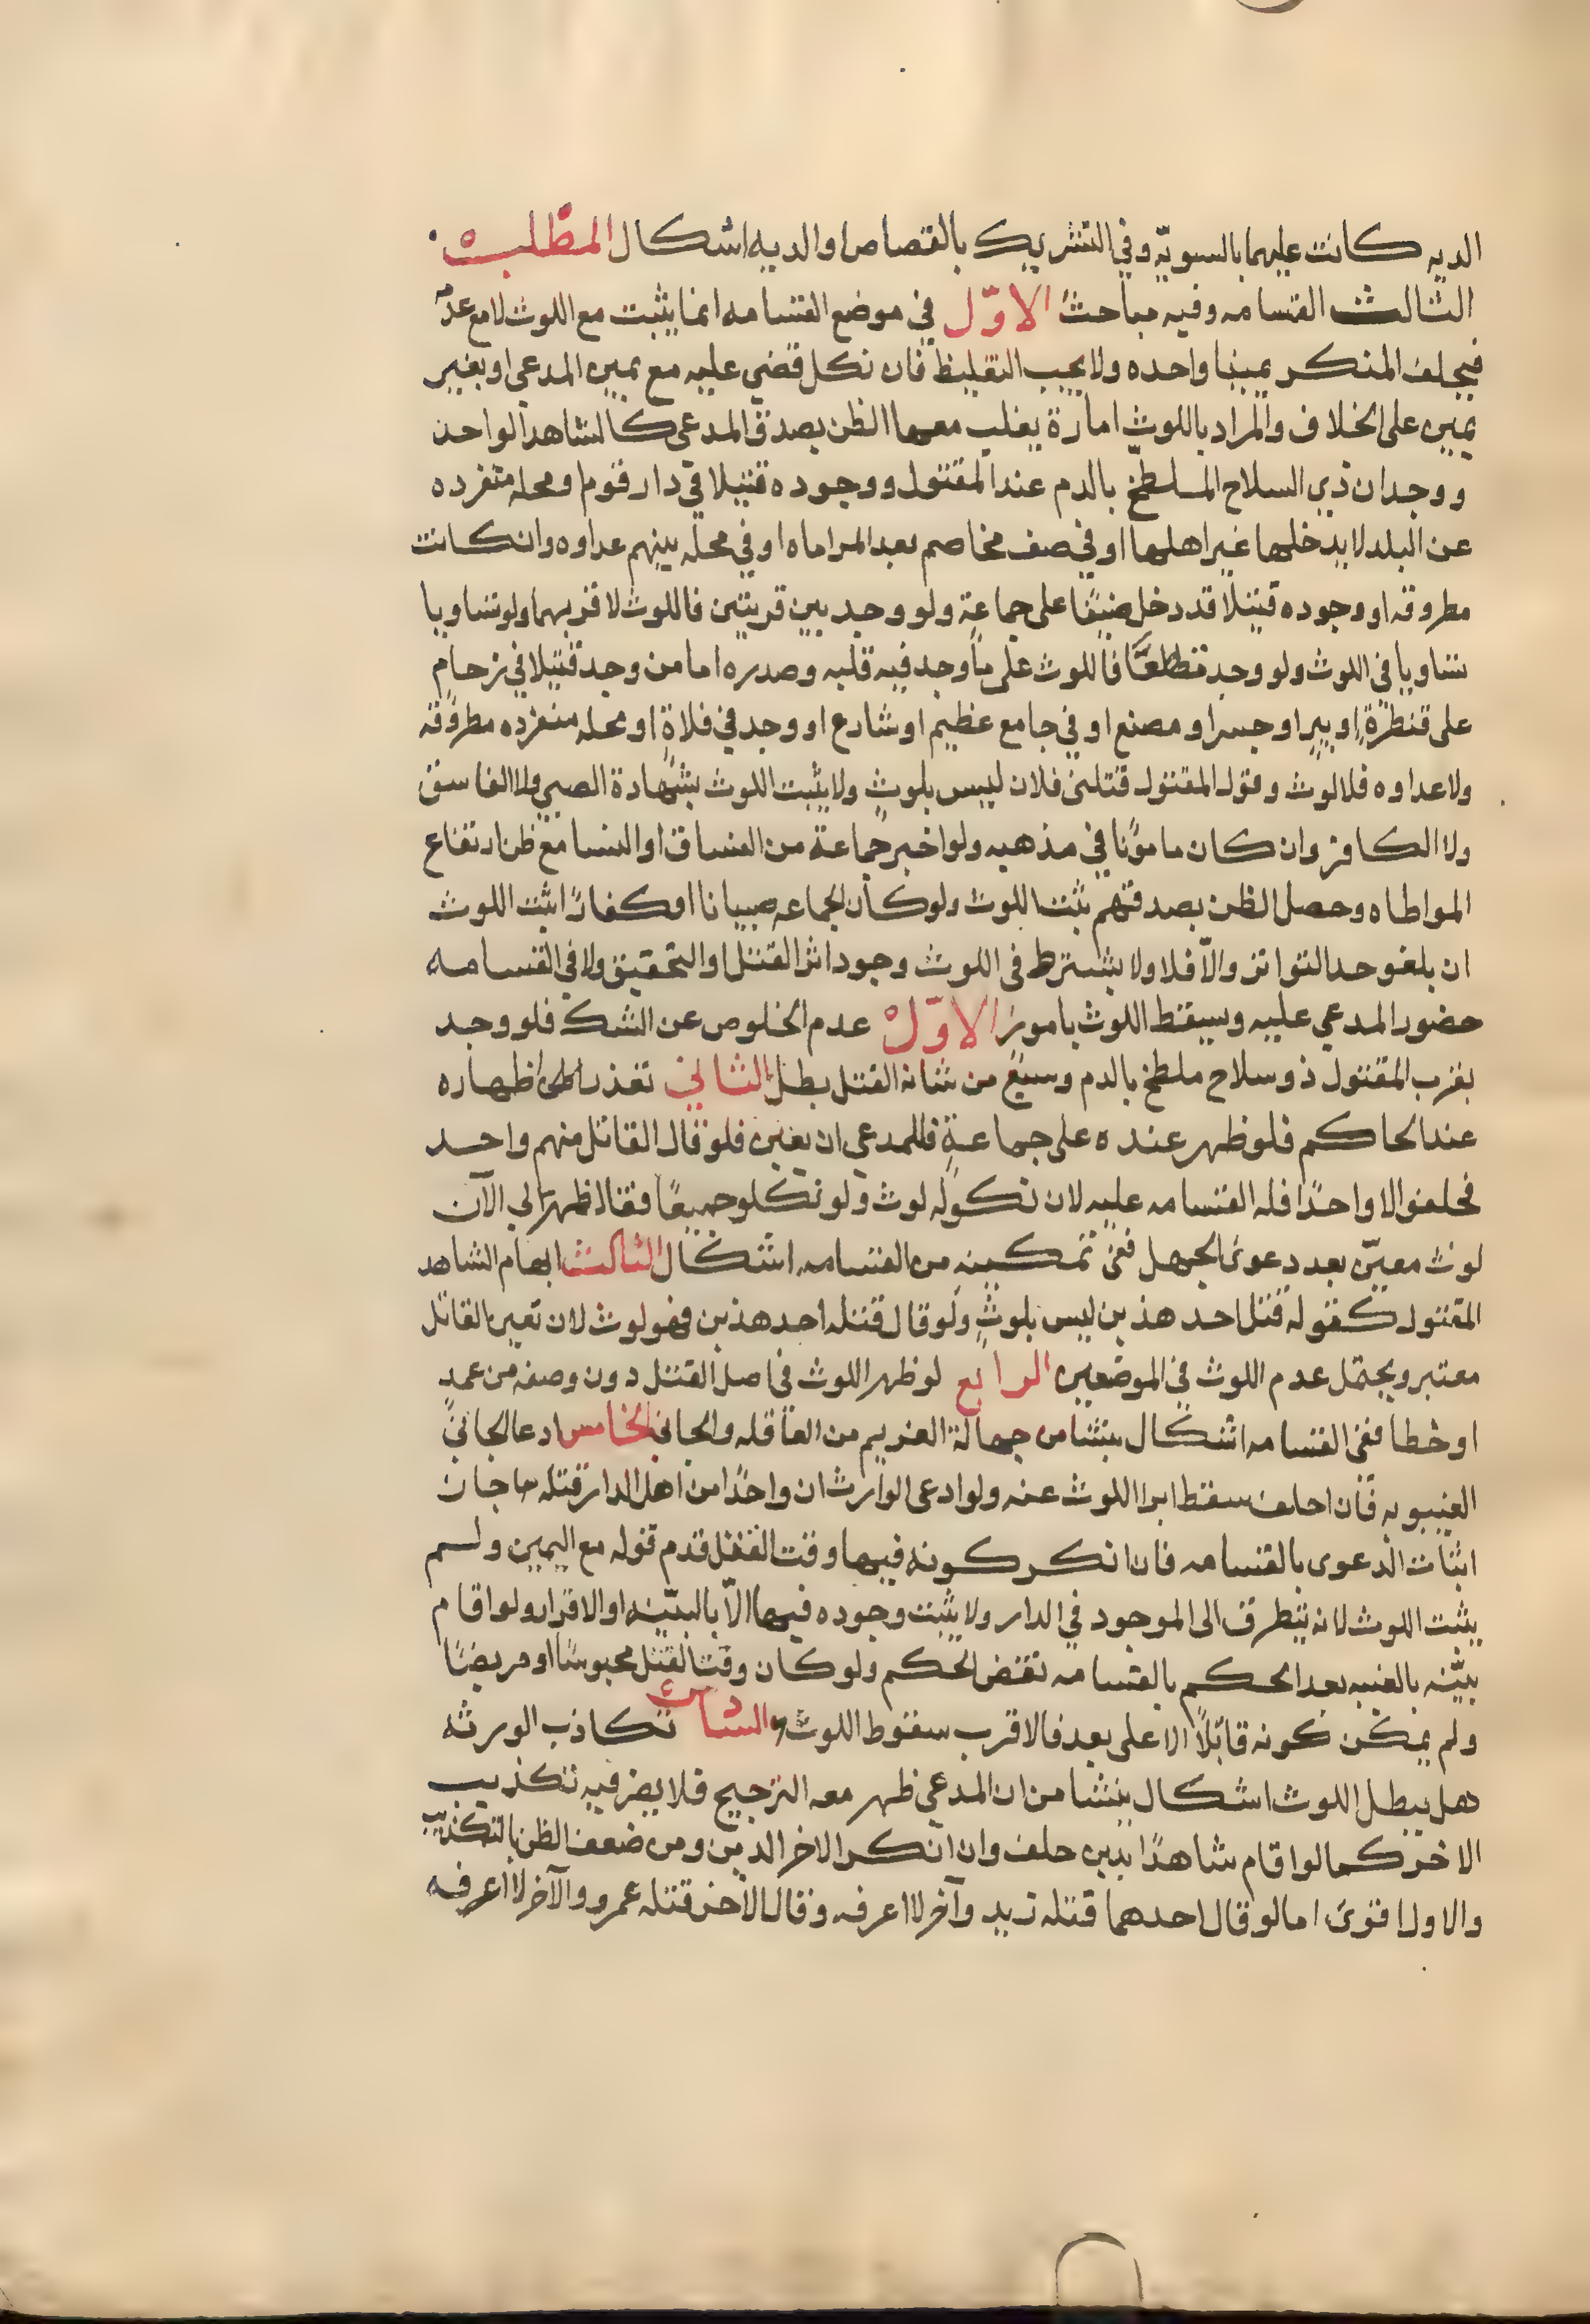 الديه كانت عليهما بالسويّه وفي التشريك بالقصاص او الديه اشكال المطلب
الثالث القسامه وفيه مباحث الاوّل في موضع القسامه انما يثبت مع اللوث لا مع عدمه
فيحلف المنكر يمينا واحده ولا يجب التغليظ فان نكل قضي عليه مع يمين المدعي او بغير
يمين على الخلاف والمراد باللوث امارة يغلب معها الظن بصدق المدعي كالشاهد الواحد
ووجدان ذي السلاح الملطخ بالدم عند المقتول ووجوده قتيلا في دار قوم او محله متفرده
عن البلد لا يدخلها غير اهلها او في صف مخاصم بعد المراماه او في محله بينهم عداوه وان كانت
مطروقه او وجوده قتيلا قد دخل ضيفًا على جماعةٍ ولو وجد بين قريتين فاللوث لاقربهما ولو تساويا
تساويا في اللوث ولو وجد متقطعًا فاللوث على ما وجد فيه قلبه وصدره اما من وجد قتيلا في زحام
على قنطرةٍ او بيرٍ او جسر او مصنع او في جامع عظيم او شارع او وجد في فلاةٍ او محله منفرده مطروقه
ولا عداوه فلا لوث وقول المقتول قتلني فلان ليس بلوثٍ ولا يثبت اللوث بشهادة الصبي ولا الفاسق
ولا الكافر وان كان مامونًا في مذهبه ولو اخبر جماعة من الفساق او النسا مع ظن ارتفاع
المواطاه وحصل الظن بصدقهم ثبت اللوث ولو كان الجماعه صبيانا او كفارًا ثبت اللوث
ان بلغو حد التواتر والّا فلا ولا يشترط في اللوث وجود اثر القتل او التحقيق ولا في القسامه
حضور المدعي عليه ويسقط اللوث بامور الاوّل عدم الخلوص عن الشك فلو وجد
بقرب المقتول ذو سلاح ملطخ بالدم وسبع من شانه القتل بطل الثاني تعذر اظهاره
عند الحاكم فلو ظهر عنده على جماعةٍ فللمدعي ان يعين فلو قال القاتل منهم واحد
فحلفوا الا واحدًا فله القسامه عليه لان نكوله لوث ولو نكلو جميعًا فقال ظهر لي الآن
لوث معيّن بعد دعوى الجهل ففي تمكينه من القسامه اشكال الثالث ابهام الشاهد
المقتول كقوله قتل احد هذين ليس بلوثٍ ولو قال قتله احد هذين فهو لوث لان تعين القاتل
معتبر ويحتمل عدم اللوث في الموضعين الرابع لو ظهر اللوث في اصل القتل دون وصفه من عمدٍ
او خطا ففي القسامه اشكال ينشا من جهالة الغريم من العاقله والجاني الخامس ادعا الجاني
الغيبوبه فان احلف سقط ابرا اللوث عنه ولو ادعى الوارث ان واحدًا من اهل الدار قتله جاز
اثبات الدعوى بالقسامه فان انكر كونه فيها وقت القتل قدم قوله مع اليمين ولم
يثبت اللوث لانه يتطرق الى الموجود في الدار ولا يثبت وجوده فيها الّا بالبيّنه او الاقرار ولو اقام
بيّنه بالغيبه بعد الحكم بالقسامه نقض الحكم ولو كان وقت القتل محبوسًا او مريضًا
ولم يمكن كونه قاتلًا الا على بعد فالاقرب سقوط اللوث السادس تكاذب الورثه
هل يبطل اللوث اشكال ينشا من ان المدعي ظهر معه الترجيح فلا يضر فيه تكذيب
الاخر كما لو اقام شاهدًا بدين حلف وان انكر الاخر الدين ومن ضعف الظن بالتكذيب
والاول اقوى اما لو قال احدهما قتله زيد وآخر لا اعرفه وقال الآخر قتله عمرو والآخر لا اعرفه